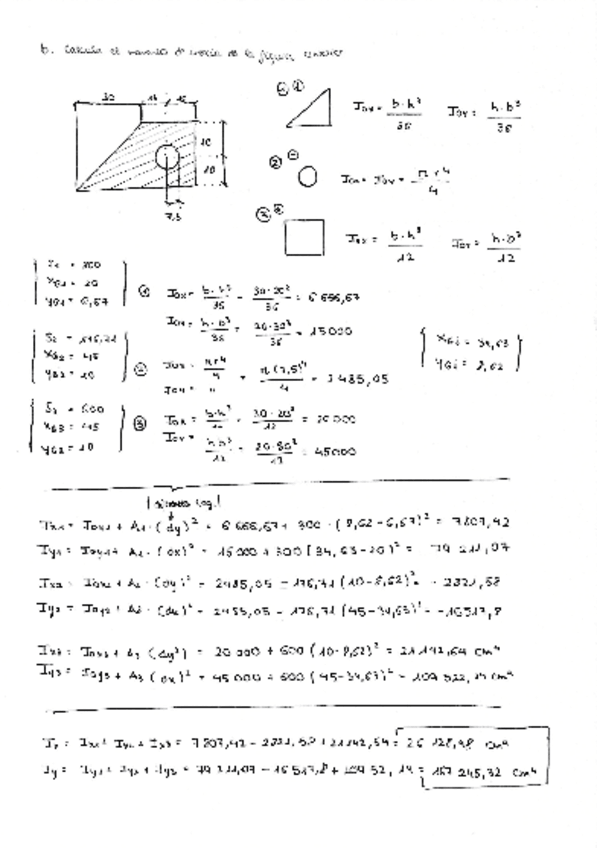 b. Calcula el momento de inercia de la figura
30 15 15
10
10
7,5
① Iox = b·h³/36 Ioy = h·b³/36
② Iox = Ioy = π r4/4
③ Iox = b·h³/12 Ioy = h·b³/12
S1 = 300
XG1 = 20
YG1 = 6,67
① Iox = b·h³/36 = 30·20³/36 = 6 666,67
Ioy = h·b³/36 = 20·30³/36 = 15000
S2 = 176,71
XG2 = 45
YG2 = 10
② Iox = πr4/4 = π(7,5)4/4 = 2 485,05
Ioy = "
S3 = 600
XG3 = 45
YG3 = 10
③ Iox = b·h³/12 = 30·20³/12 = 20 000
Ioy = h·b³/12 = 45000
XGi = 34,63
YGi = 8,62
Ix1 = Iox1 + A1·(dy)² = 6 666,67 + 300·(8,62-6,67)² = 7807,42
Iy1 = Ioy1 + A1·(dx)² = 15000 + 300(34,63-20)² = 79 211,07
Ix2 = Iox2 + A2·(dy)² = 2485,05 - 176,71(10-8,62)² = - 2821,58
Iy2 = Ioy2 + A2·(dx)² = 2485,05 - 176,71(45-34,63)² =
Ix3 = Iox3 + A3(dy²) = 20 000 + 600(10-8,62)² = 21142,64 cm4
Iy3 = Ioy3 + A3(dx)² = 45000 + 600(45-34,63)² = cm4
Ix = Ix1 + Ix2 + Ix3 = 7807,42 - 2821,58 + = 26 128,48 cm4
Iy = Iy1 + Iy2 + Iy3 = 79 211,07 - = 167 245,32 cm4